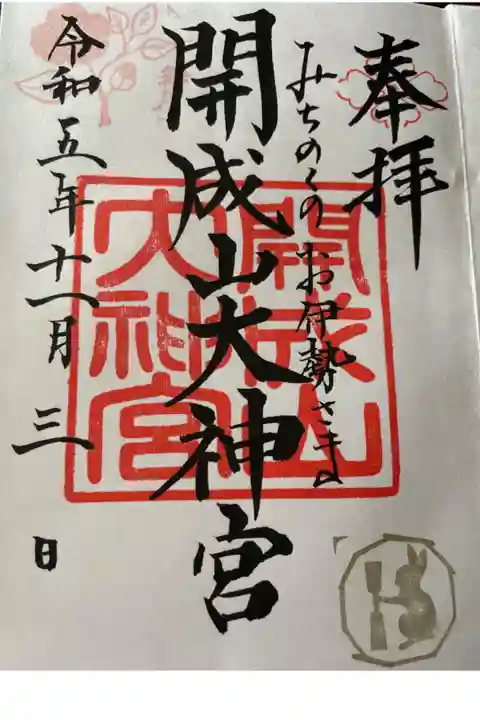 奉拝
みちのくのお伊勢さま
開成山大神宮
開成山
大神宮
令和五年十一月三日